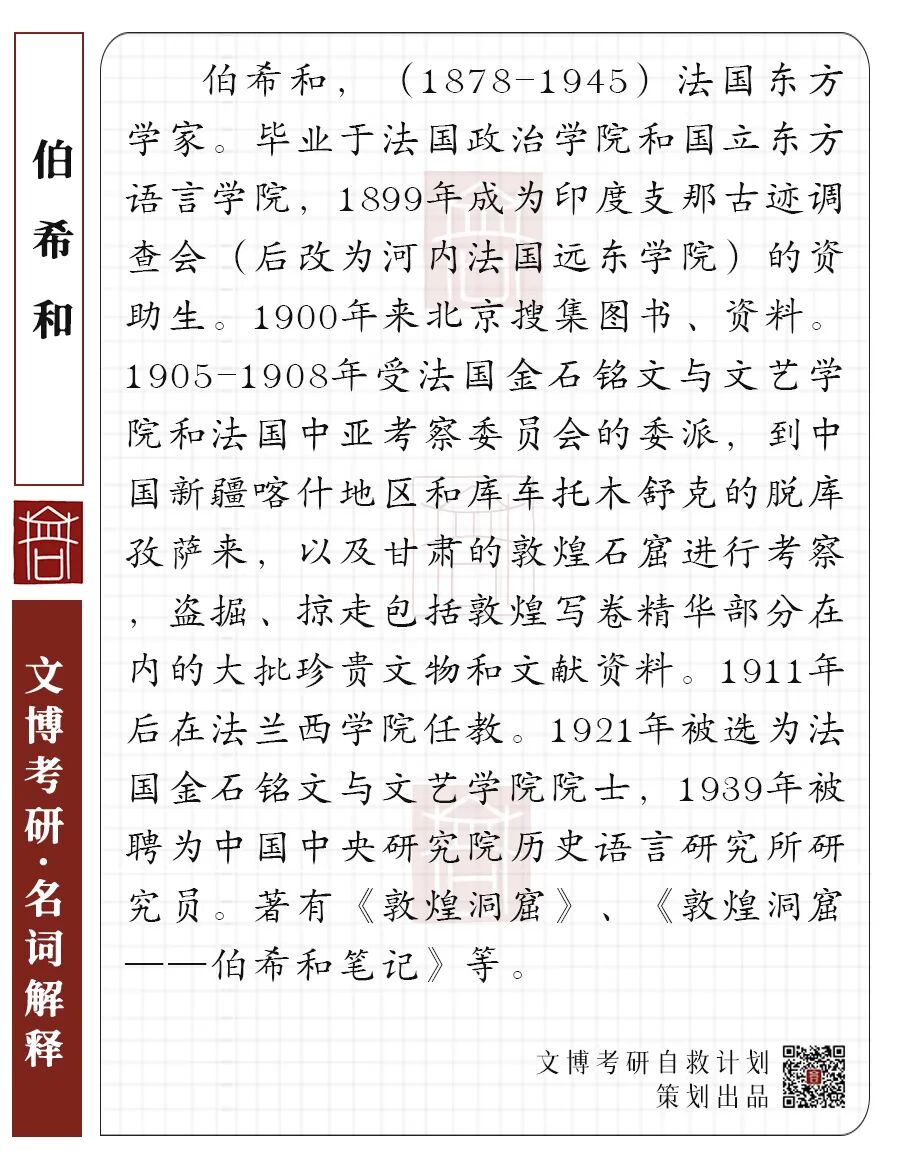 伯希和
文博考研·名词解释
伯希和，（1878-1945）法国东方
学家。毕业于法国政治学院和国立东方
语言学院，1899年成为印度支那古迹调
查会（后改为河内法国远东学院）的资
助生。1900年来北京搜集图书、资料。
1905-1908年受法国金石铭文与文艺学
院和法国中亚考察委员会的委派，到中
国新疆喀什地区和库车托木舒克的脱库
孜萨来，以及甘肃的敦煌石窟进行考察
，盗掘、掠走包括敦煌写卷精华部分在
内的大批珍贵文物和文献资料。1911年
后在法兰西学院任教。1921年被选为法
国金石铭文与文艺学院院士，1939年被
聘为中国中央研究院历史语言研究所研
究员。著有《敦煌洞窟》、《敦煌洞窟
——伯希和笔记》等。
文博考研自救计划
策划出品